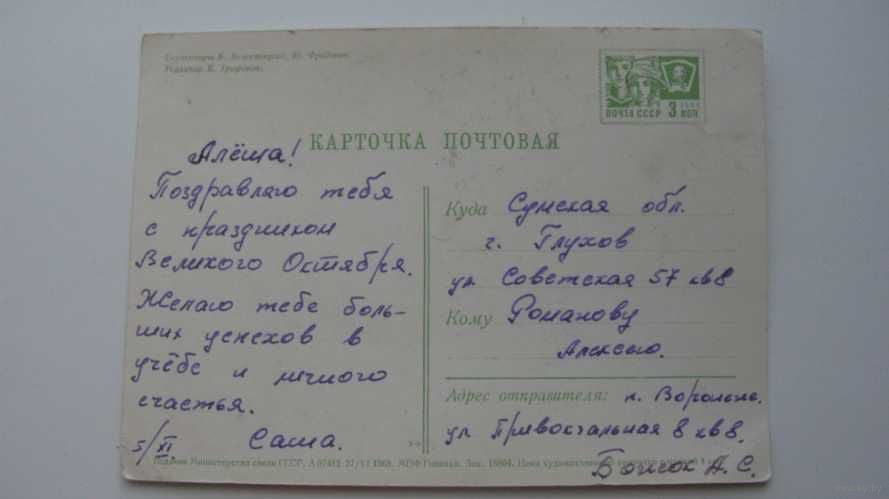 Редактор Е. Трефилов.
ПОЧТА СССР 3 КОП.
КАРТОЧКА ПОЧТОВАЯ
Алёша!
Поздравляю тебя
с праздником
Великого Октября.
Желаю тебе боль-
ших успехов в
учёбе и личного
счастья.
5/XI Саша.
Куда Сумская обл.
г. Глухов
ул Советская 57 кв 8
Кому Романову
Алексею.
Адрес отправителя:
ул Привокзальная 8 кв 8.
А. С.
Издание Министерства связи СССР. А 07412 27/VI 1968. МПФ Гознака. Зак.